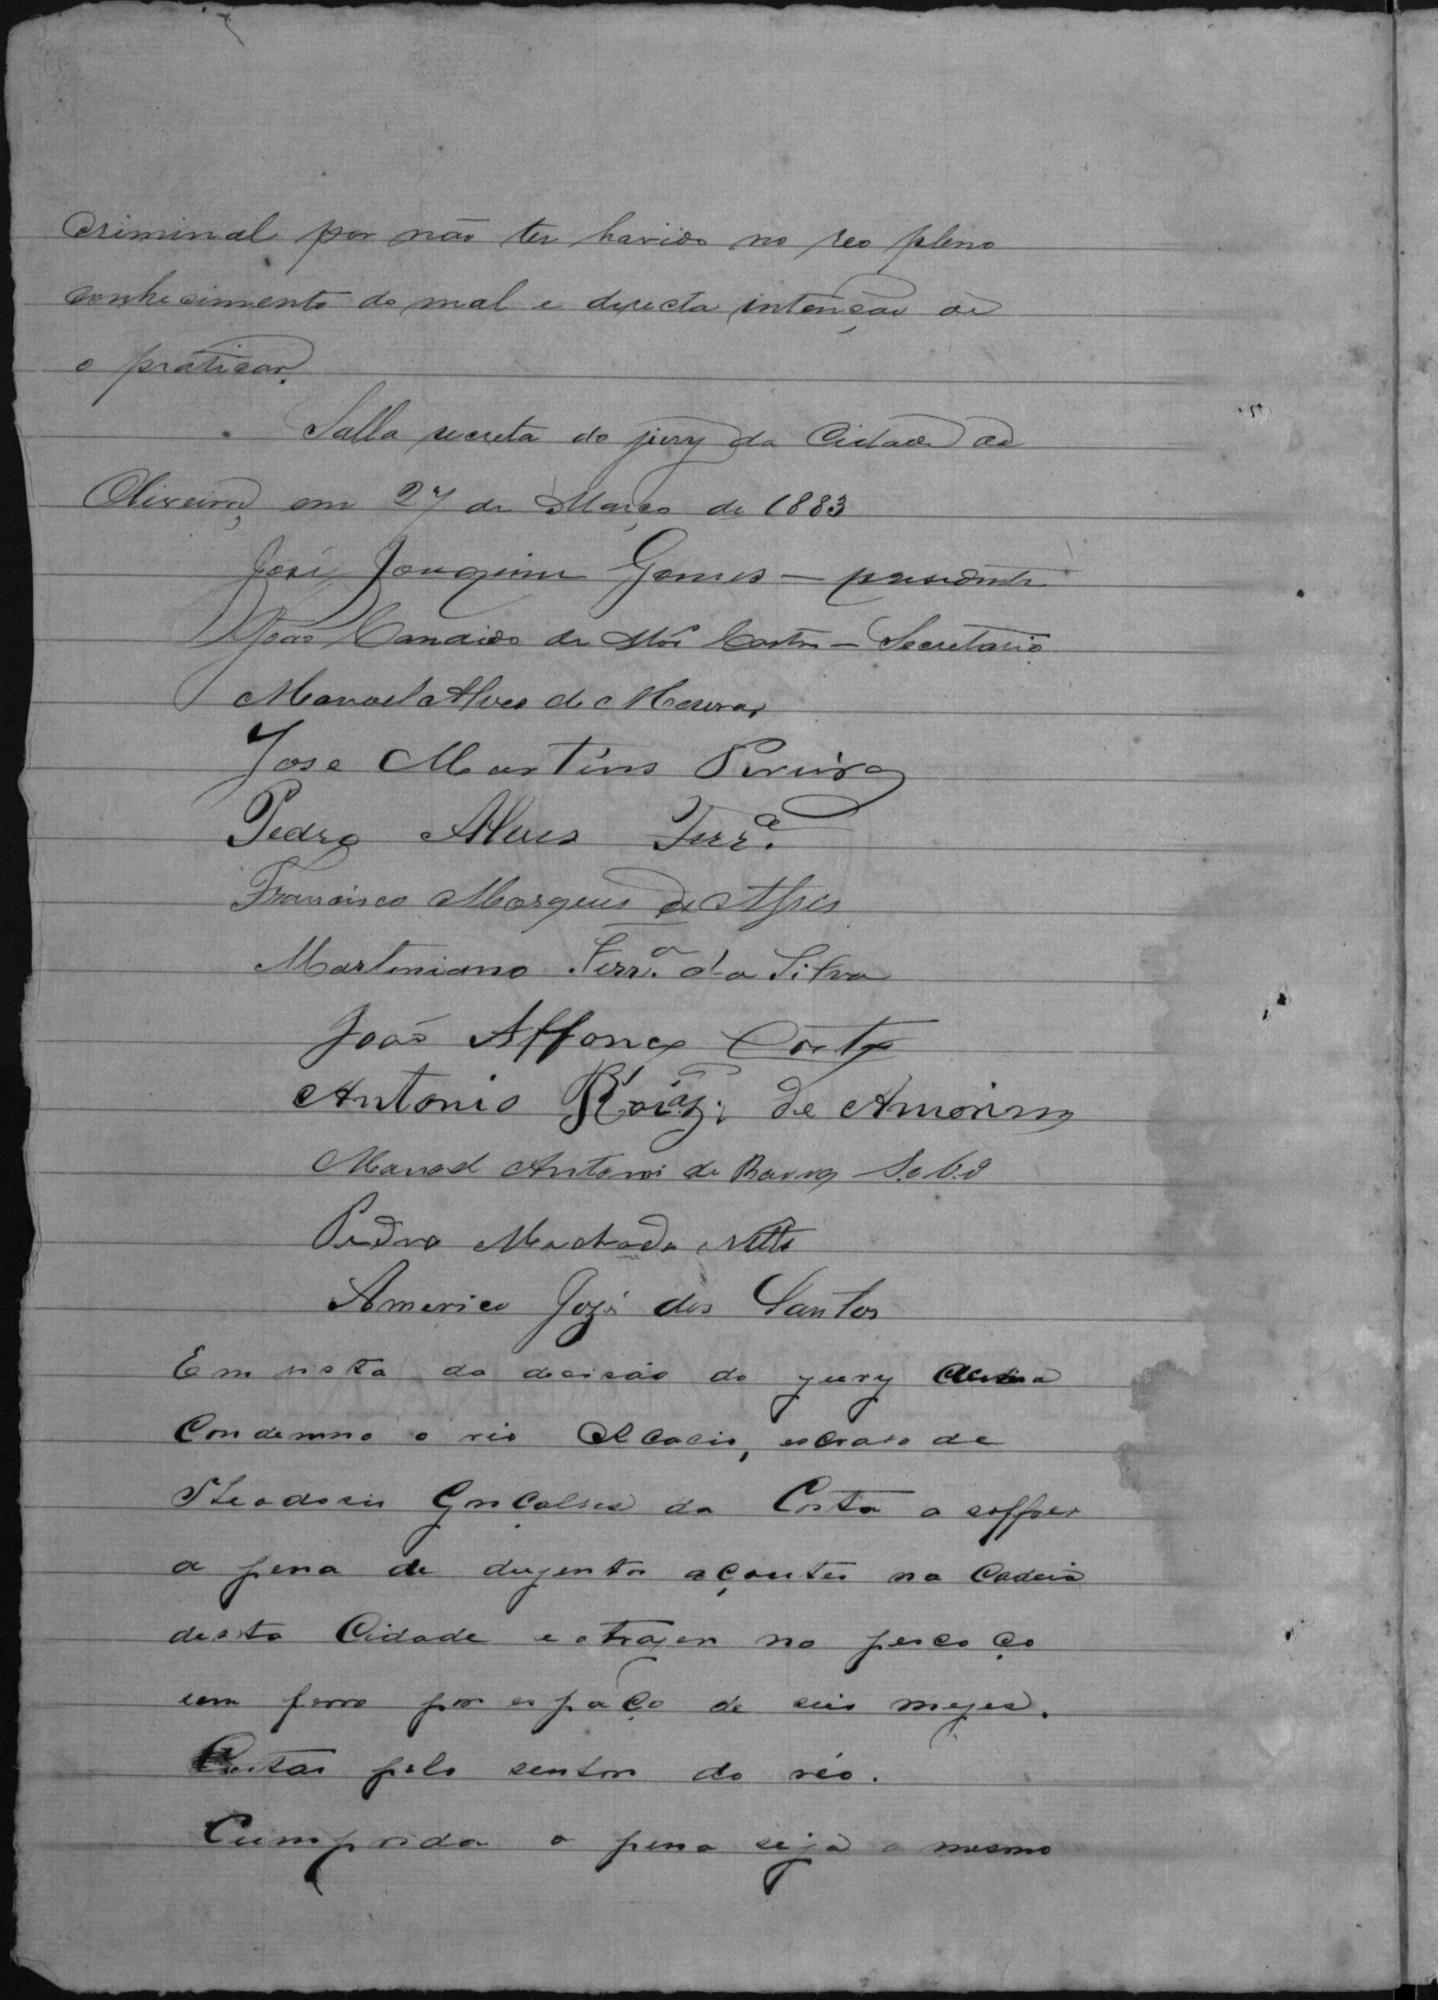 Criminal por não ter havido no reo pleno
conhecimento do mal e directa intenção de
o praticar.
Salla secreta do jury da Cidade de
Oliveira, em 27 de Março de 1883
José Joaquim Gomes — presidente
João Candido de Castro — Secretario
Manoel Alves de Moura
Jose Martins Pereira
Pedro Alves Ferr.ª
Francisco Marques de Assis
Martiniano Ferr.ª da Silva
João Affonço Costa
Antonio Roiz de Amorim
Manoel Antonio de Barros
Pedro Machado Netto
Americo Jozé dos Santos
Em vista da decisão do jury
Condemno o réo Acacio, escravo de
Theodosio Gonçalves da Costa a soffrer
a pena de duzentos açoutes na Cadeia
desta Cidade e a trazer no pescoço
um ferro por espaço de seis mezes.
Custas pelo senhor do réo.
Cumprida a pena seja o mesmo